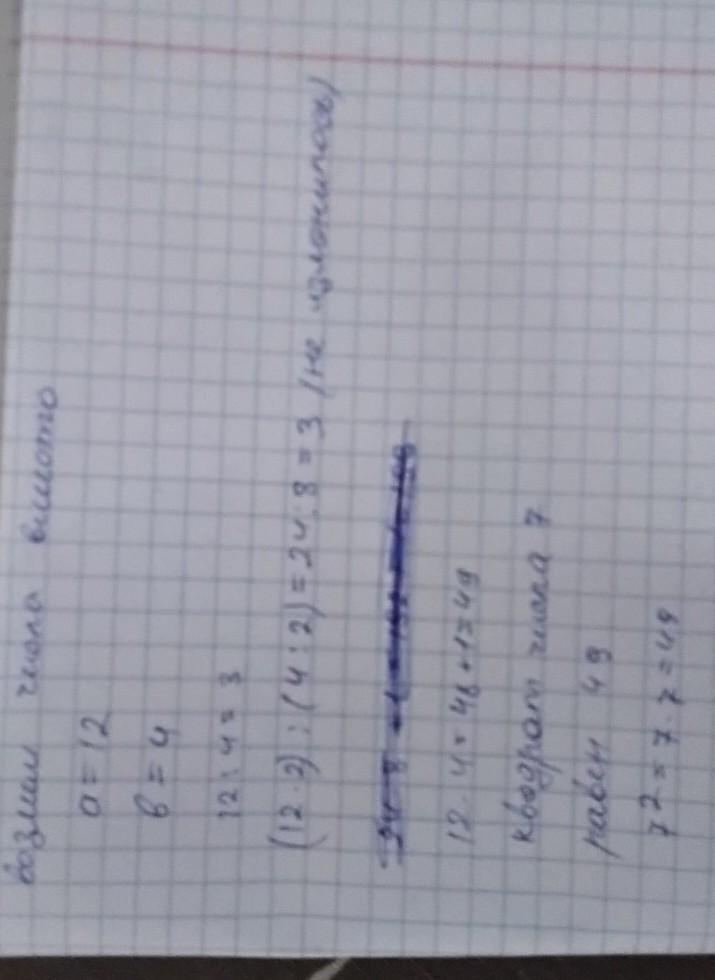 возмем числа вместо
a = 12
в = 4
12 : 4 = 3
(12 · 2) : (4 : 2) = 24 : 8 = 3 (не изменилось)
12 · 4 = 48 + 1 = 49
квадрат числа 7
равен 49
7 2 = 7 · 7 = 49